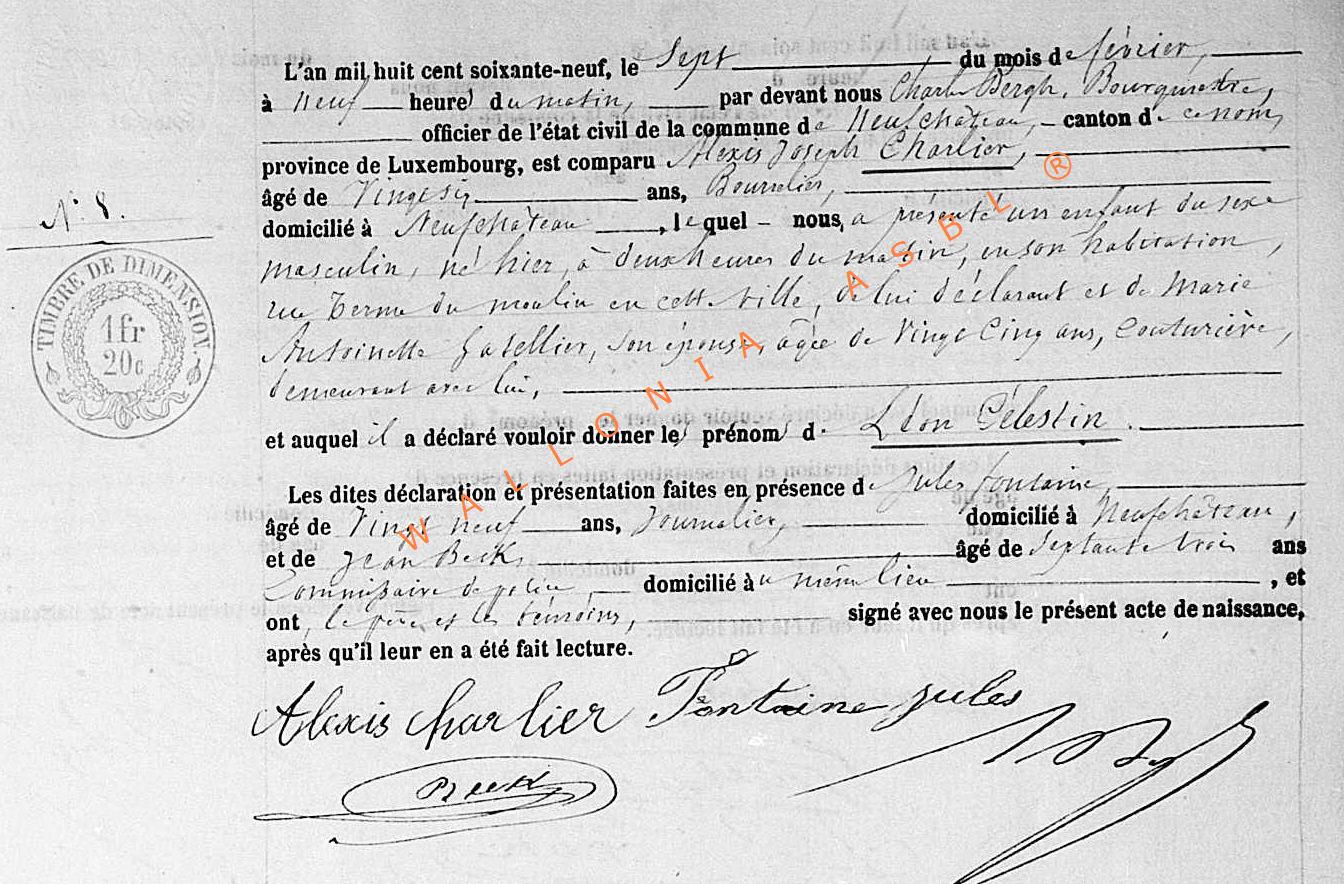 L'an mil huit cent soixante-neuf, le Sept du mois de février,
à Neuf heures du matin, par devant nous Charles Bergh, Bourgmestre,
officier de l'état civil de la commune de Neufchâteau, canton de ce nom,
province de Luxembourg, est comparu Alexis Joseph Charlier,
âgé de Vingt six ans, Bourrelier,
domicilié à Neufchâteau, lequel nous a présenté un enfant du sexe
masculin, né hier, à deux heures du matin, en son habitation,
rue Terme du moulin en cette ville, de lui déclarant et de Marie
Antoinette Gatellier, son épouse, âgée de Vingt Cinq ans, Couturière,
demeurant avec lui,
et auquel il a déclaré vouloir donner les prénoms de Léon Célestin.
Les dites déclaration et présentation faites en présence de Jules Fontaine,
âgé de Vingt neuf ans, Journalier, domicilié à Neufchâteau,
et de Jean Beck, âgé de Septante trois ans
Commissaire de police, domicilié au même lieu, et
ont, le père et les témoins, signé avec nous le présent acte de naissance,
après qu'il leur en a été fait lecture.
N° 8.
TIMBRE DE DIMENSION.
1fr
20c
Alexis Charlier Fontaine jules
Beck
WALLONIA ASBL ®